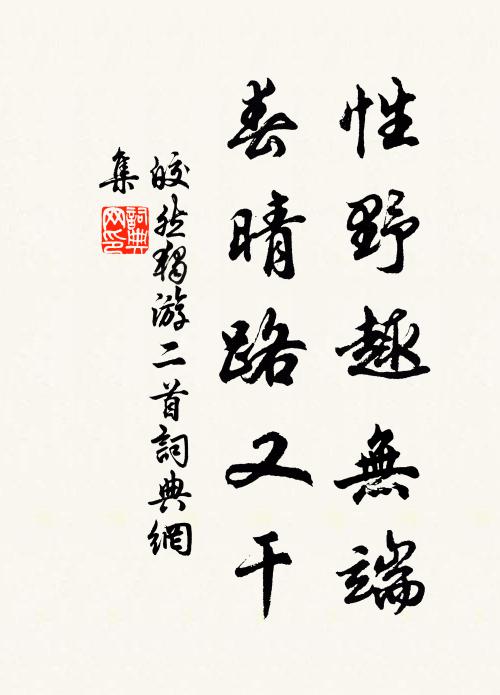 性野趣無端
春晴路又干
皎然獨游二首詞典網
集
詞典網印